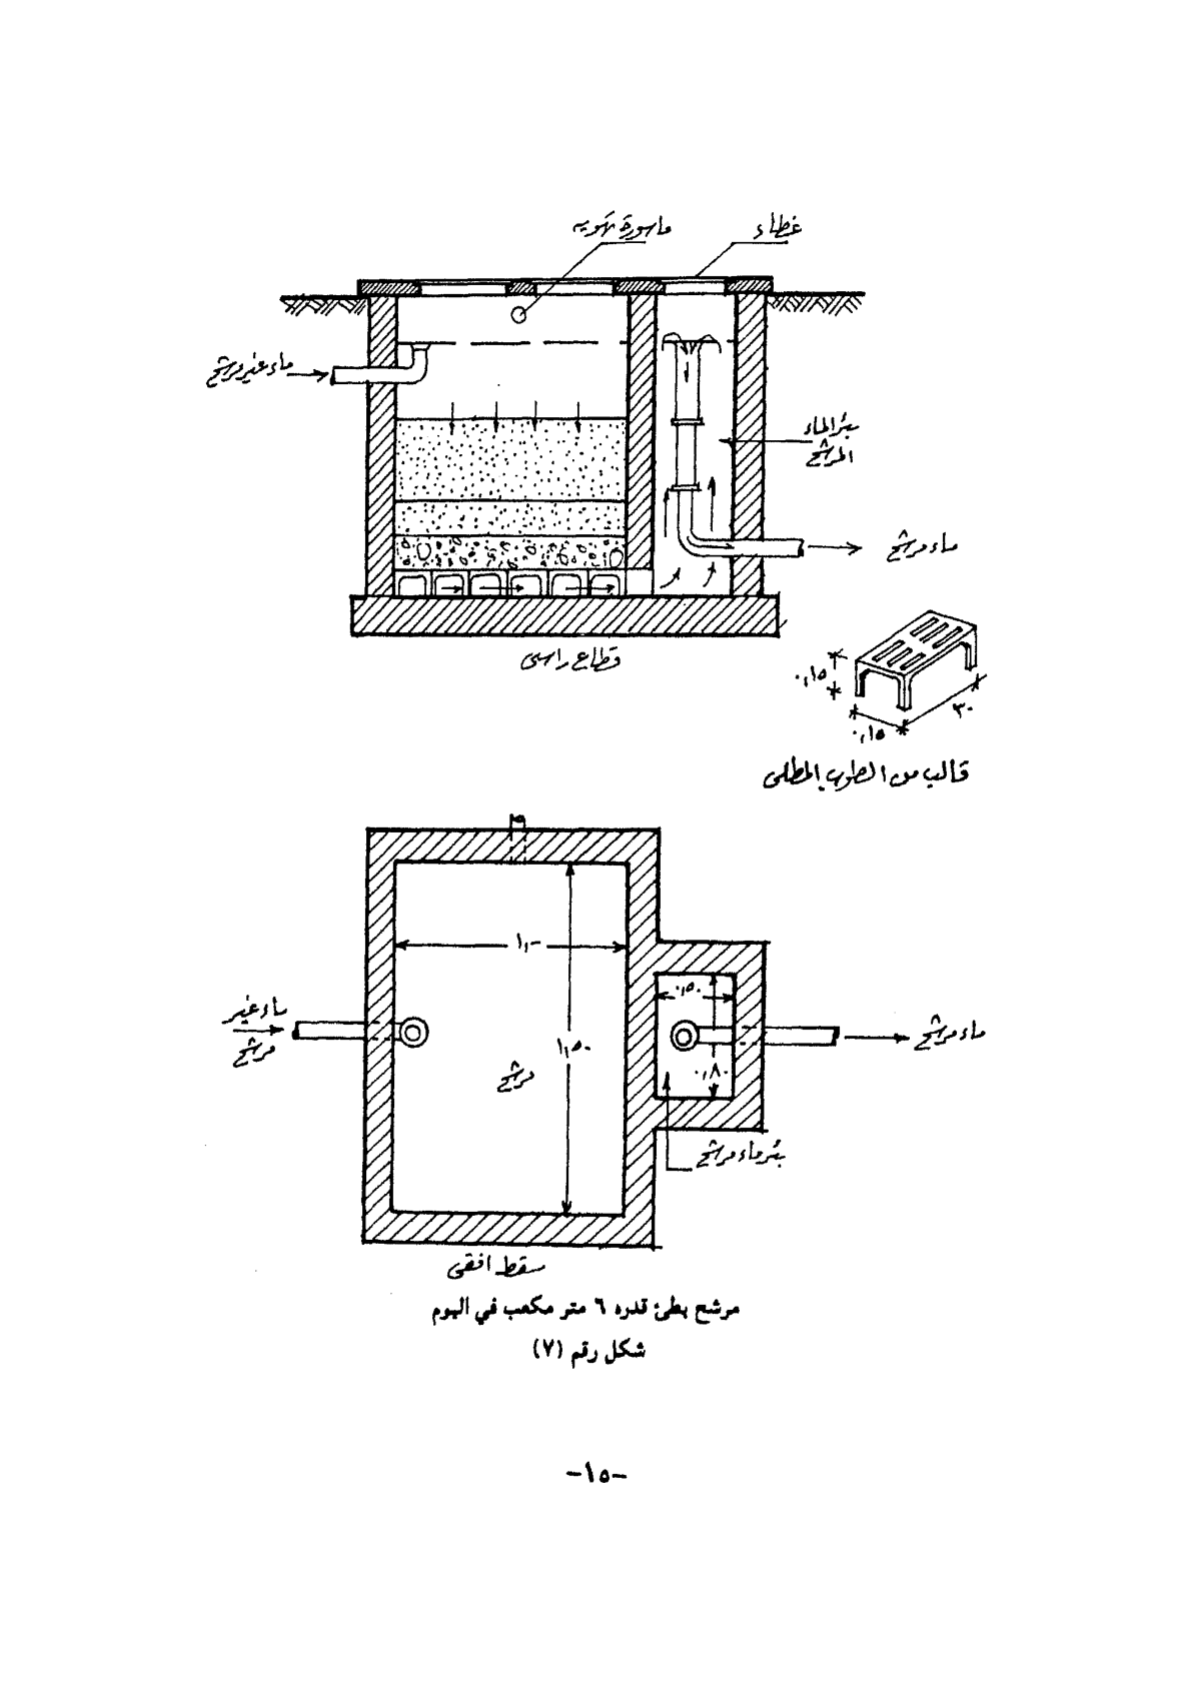 ماسورة تهويه
غطاء
ماء غير مرشح
بئر الماء
المرشح
ماء مرشح
قطاع راسى
٠,١٥
٣٠
٠,١٥
قالب من الطوب المطلى
١,٠٠
١,٥٠
مرشح
٠,٥٠
٠,٨٠
ماء غير
مرشح
ماء مرشح
بئر ماء مرشح
مسقط افقى
مرشح بطئ قدره ٦ متر مكعب في اليوم
شكل رقم (٧)
-١٥-